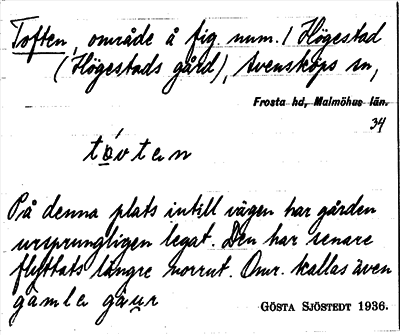 Toften, område å fig. num. 1 Högestad
(Högestads gård), Svensköps sn,
Frosta hd, Malmöhus län.
34
tóvten
På denna plats intill vägen har gården
ursprungligen legat. Den har senare
flyttats längre norrut. Omr. kallas även
gamla gåur
GÖSTA SJÖSTEDT 1936.